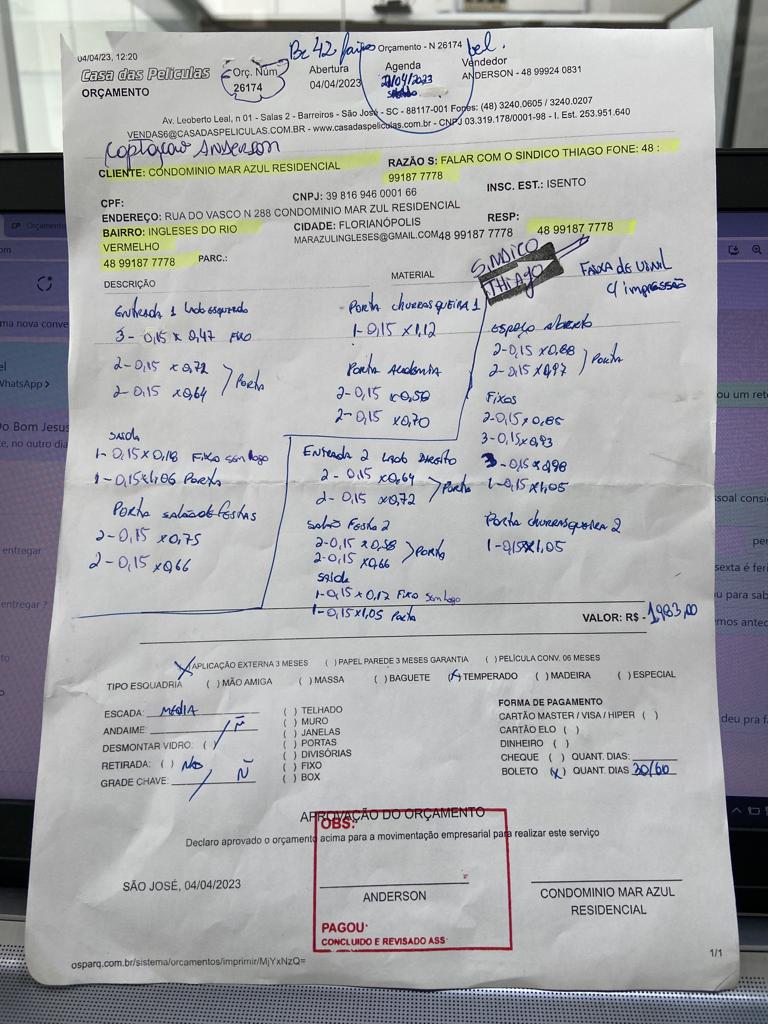 Bc 42 faixas
bel.
04/04/23, 12:20
Orçamento - N 26174
Casa das Peliculas
ORÇAMENTO
Orç. Núm
26174
Abertura
04/04/2023
Agenda
/04/2023
Vendedor
ANDERSON - 48 99924 0831
Av. Leoberto Leal, n 01 - Salas 2 - Barreiros - São José - SC - 88117-001 Fones: (48) 3240.0605 / 3240.0207
VENDAS6@CASADASPELICULAS.COM.BR - www.casadaspeliculas.com.br - CNPJ 03.319.178/0001-98 - I. Est. 253.951.640
Captação Anderson
CLIENTE: CONDOMINIO MAR AZUL RESIDENCIAL
RAZÃO S: FALAR COM O SINDICO THIAGO FONE: 48 :
99187 7778
CPF:
CNPJ: 39 816 946 0001 66
INSC. EST.: ISENTO
ENDEREÇO: RUA DO VASCO N 288 CONDOMINIO MAR ZUL RESIDENCIAL
BAIRRO: INGLESES DO RIO
VERMELHO
CIDADE: FLORIANÓPOLIS
RESP:
48 99187 7778
MARAZULINGLESES@GMAIL.COM48 99187 7778
48 99187 7778
PARC.:
DESCRIÇÃO
MATERIAL
SINDICO
THIAGO
FAIXA DE VINIL
C/ impressão
Entrada 1 lado esquerdo
3 - 0,15 x 0,47 Fixo
2 - 0,15 x 0,72
2 - 0,15 x 0,64
Porta
Porta churrasqueira 1
1 - 0,15 x 1,12
Porta Academia
2 - 0,15 x 0,58
2 - 0,15 x 0,70
Espaço Aberto
2 - 0,15 x 0,88
2 - 0,15 x 0,97
Porta
Fixos
2 - 0,15 x 0,86
3 - 0,15 x 0,93
3 - 0,15 x 0,98
1 - 0,15 x 1,05
Saida
1 - 0,15 x 0,18 Fixo sem logo
1 - 0,15 x 1,06 Porta
Porta salão de Festas
2 - 0,15 x 0,75
2 - 0,15 x 0,66
ENTRADA 2 Lado Direito
2 - 0,15 x 0,64
2 - 0,15 x 0,72
Porta
Salão Festa 2
2 - 0,15 x 0,58
2 - 0,15 x 0,66
Porta
Saida
1 - 0,15 x 0,17 Fixo sem logo
1 - 0,15 x 1,05 Porta
Porta churrasqueira 2
1 - 0,15 x 1,05
VALOR: R$ - 1.983,00
X APLICAÇÃO EXTERNA 3 MESES ( ) PAPEL PAREDE 3 MESES GARANTIA ( ) PELÍCULA CONV. 06 MESES
TIPO ESQUADRIA ( ) MÃO AMIGA ( ) MASSA ( ) BAGUETE (X) TEMPERADO ( ) MADEIRA ( ) ESPECIAL
ESCADA: MEDIA
ANDAIME: Ñ
DESMONTAR VIDRO: ( )
RETIRADA: ( ) Não
GRADE CHAVE: Ñ
( ) TELHADO
( ) MURO
( ) JANELAS
( ) PORTAS
( ) DIVISÓRIAS
( ) FIXO
( ) BOX
FORMA DE PAGAMENTO
CARTÃO MASTER / VISA / HIPER ( )
CARTÃO ELO ( )
DINHEIRO ( )
CHEQUE ( ) QUANT. DIAS:
BOLETO (X) QUANT. DIAS 30/60
APROVAÇÃO DO ORÇAMENTO
OBS:
Declaro aprovado o orçamento acima para a movimentação empresarial para realizar este serviço
SÃO JOSÉ, 04/04/2023
ANDERSON
CONDOMINIO MAR AZUL
RESIDENCIAL
PAGOU
CONCLUIDO E REVISADO ASS
osparq.com.br/sistema/orcamentos/imprimir/MjYxNzQ=
1/1